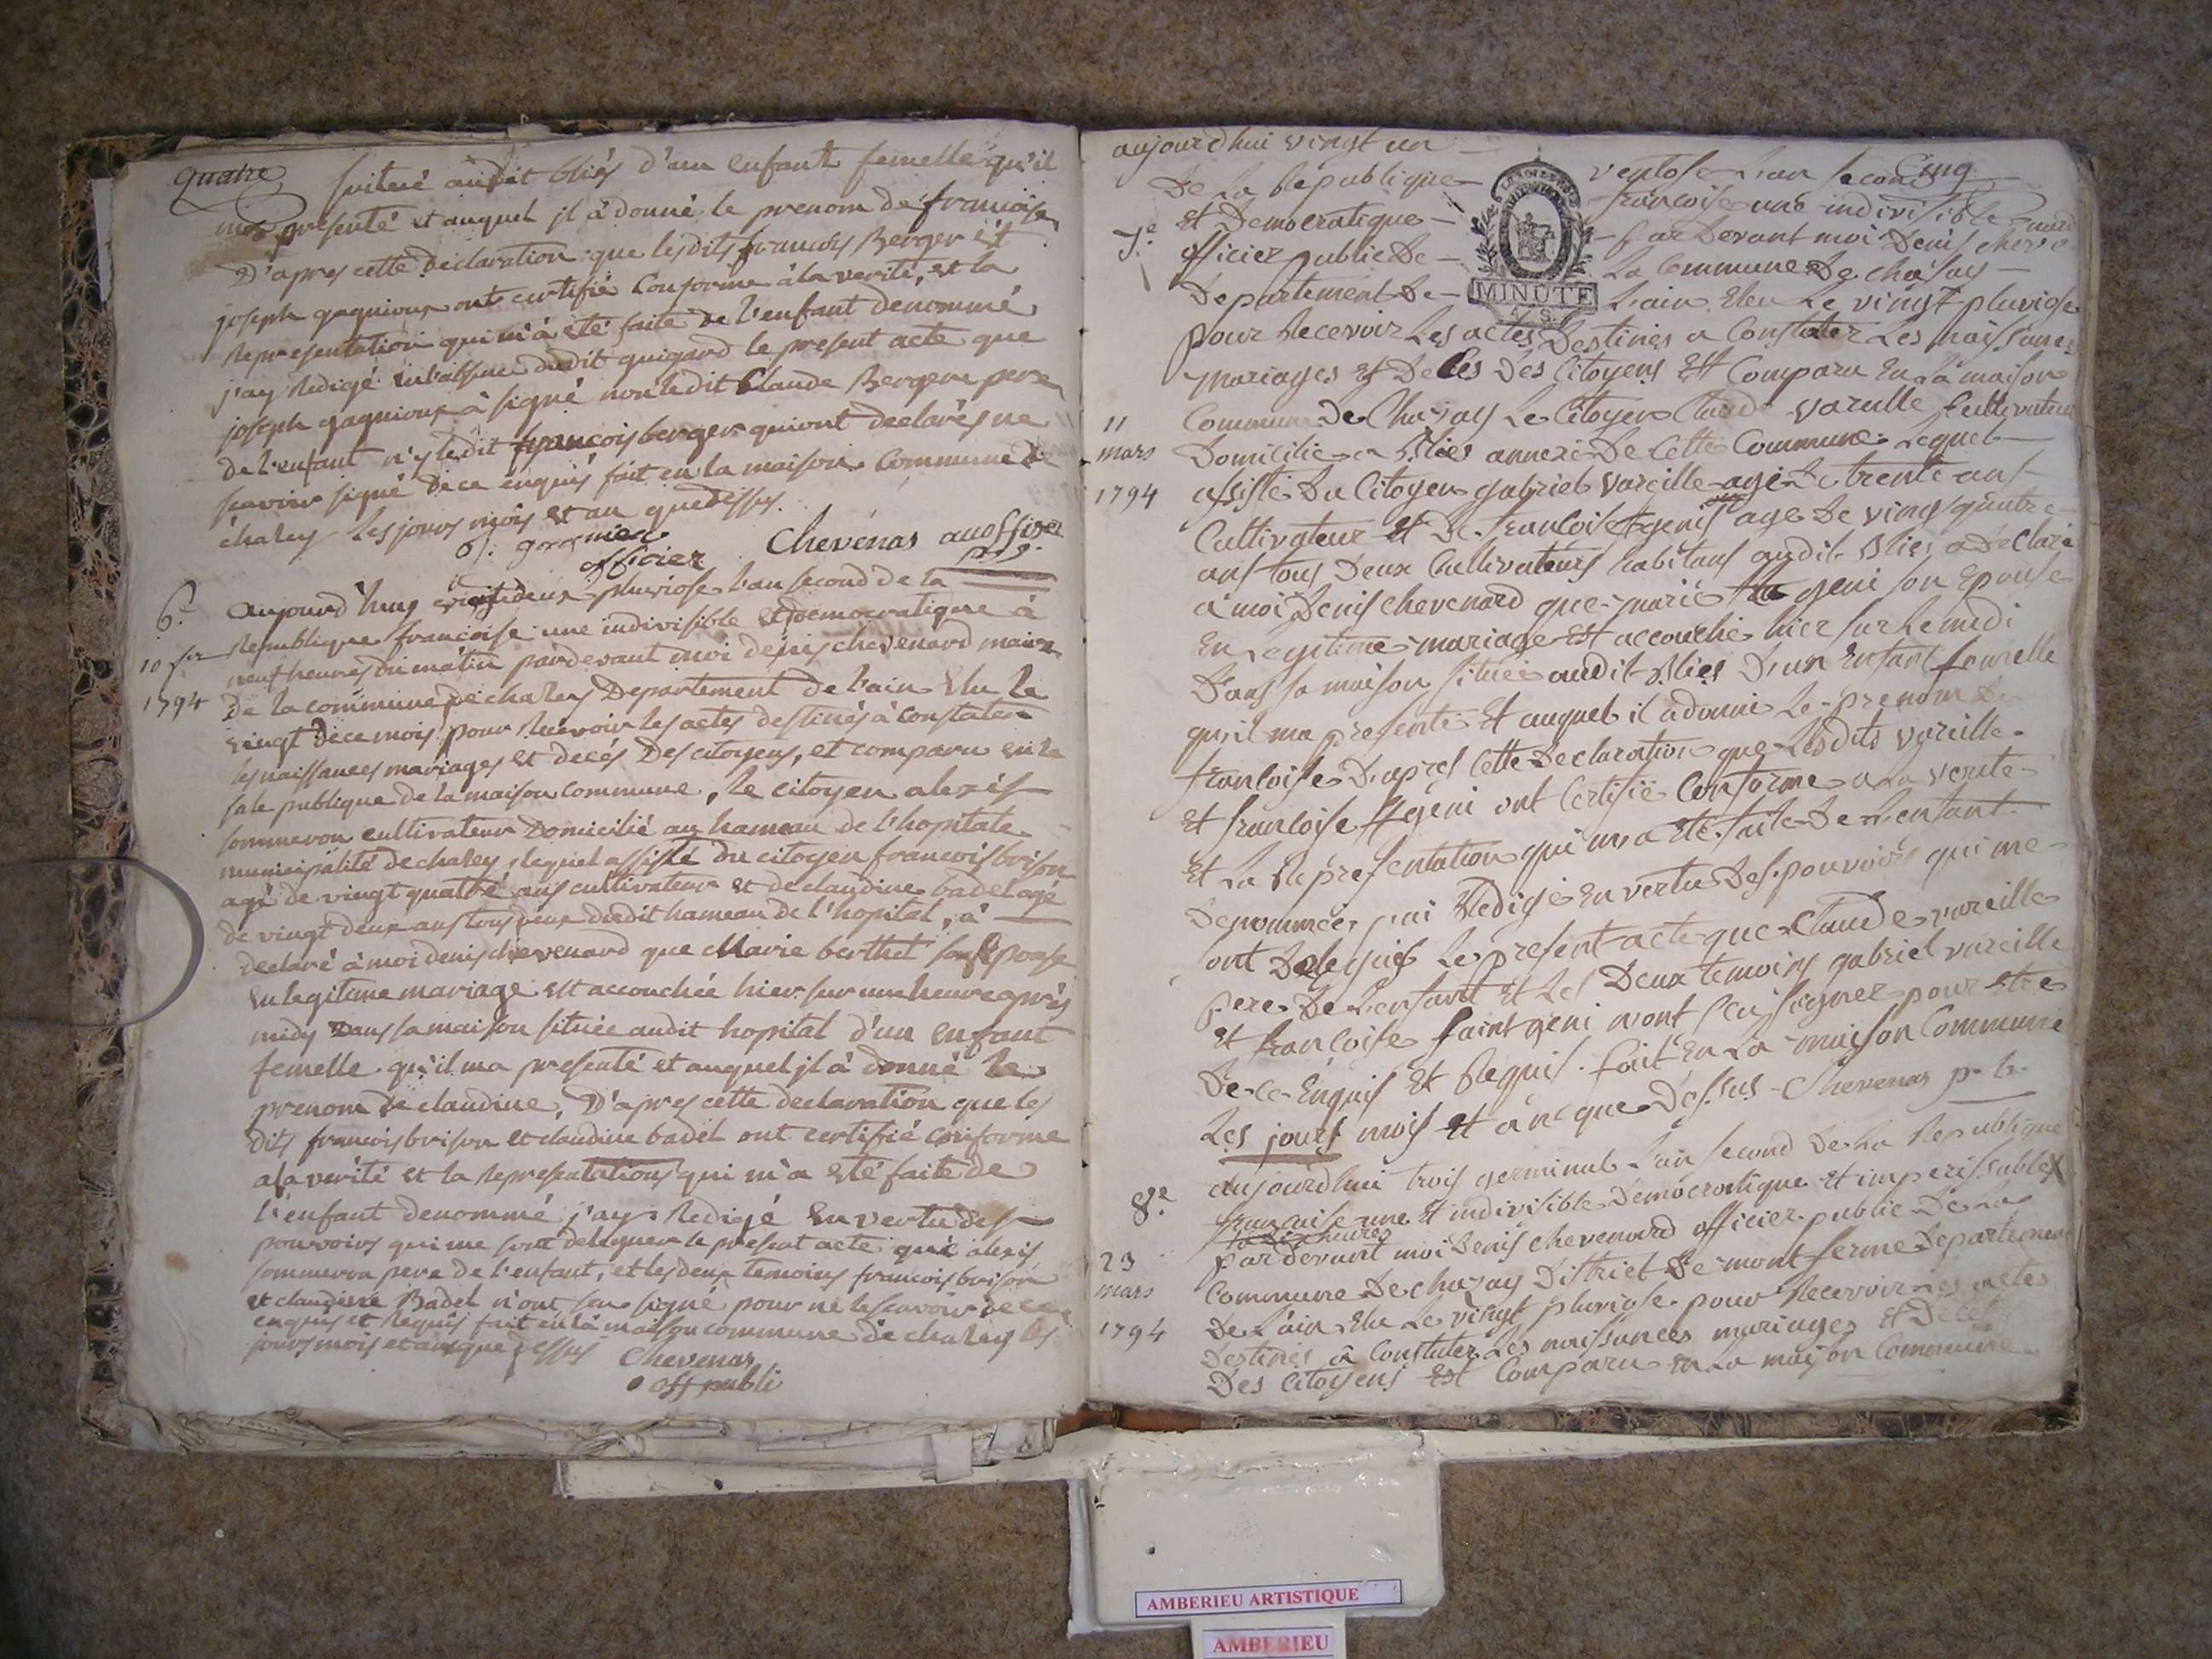 quatre
située audit bliés d'un enfant femelle qu'il
présenté et auquel jl à donné le prenom de francoise
D'apres cette declaration que lesdits francois Berger et
joseph gagnioux ont certifié Conforme à la verité, et la
Representation qui m'à eté faite de l'enfant denommé
j'ay Redigé dudit guigard le present acte que
joseph gagnioux à signé non ledit Claude Berger pere
de l'enfant n'y ledit francois berger qui ont declarés ne
scavoir signé de ce enquis fait en la maison Commune de
chaley les jours mois et an que dessus.
officier
Chevenas
6e
10 fer
1794
aujourd'huy vingt deux pluviose l'an second de la
Republique francoise une indivisible et democratique à
neuf heures du matin pardevant moi denis chevenard maire
de la commune de chaley Departement de l'ain Elu le
vingt de ce mois pour Recevoir les actes destinés à constater
les naissances mariages et decés Des citoyens, et comparu en la
sale publique de la maison commune, le citoyen alexis
sommeron cultivateur Domicilié au hameau de l'hopital
municipalité de chaley, lequel assisté du citoyen francois brison
agé de vingt quatre ans cultivateur et de claudine badel agé
de vingt deux ans tous deux dudit hameau de l'hopital, à
declaré à moi denis chevenard que Marie berthet son Epouse
en legitime mariage est accouchée hier sur une heure après
midy Dans sa maison située audit hopital d'un enfant
femelle qu'il ma presenté et auquel jl à donné le
prenom de claudine, D'apres cette declaration que les
dits francois brison et claudine badel ont certifié conforme
a la verité et la representation qui m'a eté faite de
l'enfant denommé j'ay Redigé En vertu des
pouvoirs qui me sont delegues le present acte que alexis
sommeron pere de l'enfant, et les deux temoins francois brison
et claudine Badel n'ont seu signé pour ne le scavoir de ce
enquis et Requis fait en la maison commune de chaley les
jours mois et an que dessus
Chevenas
off publi
cinq
aujourdhui vingt un ventose L'an second
De La Republique francoise une indivisible
7e
Et Democratique par Devant moi Denis cheve
nard
officier public De La Commune De chasay
Departement De L'ain Eleu Le vingt pluviose
MINUTE
pour Recevoir Les actes Destinés a Constater Les naissances
mariages Et Decès Des Citoyens Est Comparu En La maison
11
mars
1794
Commune De Chasay Le Citoyen Claude vareille Cultivateur
Domicilié a Blies annexe De Cette Commune Lequel
assisté Du Citoyen gabriel vareille agé De trente ans
Cultivateur Et De francoise St geni age De vingt quatre
ans tous Deux Cultivateurs habitans audit Blies a Declaré
a moi Denis chevenard que marie St geni son Epouse
En Legitime mariage Est accouchée hier sur Le midi
Dans sa maison située audit Blies D'un Enfant femelle
qu'il ma presenté Et auquel il a donné Le prenom De
francoise D'apres Cette Declaration que Lesdits vareille
Et francoise St géni ont Certifié Conforme a La verité
Et La Representation qui m'a Eté faite De L'enfant
Denommée j'ai Redigé En vertu Des pouvoirs qui me
sont Delegués Le present acte que Claude vareille
pere De L'enfant Et Les Deux temoins gabriel vareille
Et francoise saint geni n'ont sçu signer pour etre
De ce Enquis Et Requis fait En La maison Commune
Les jours mois Et an que Dessus Chevenas
8e
23
mars
1794
aujourdhui trois germinal L'an second De La Republique
francaise une Et indivisible Democratique Et imperissable
par devant moi Denis chevenard officier public De La
Commune De chasay District De mont ferme Departement
De L'ain Elu Le vingt pluviose pour Recevoir Les actes
Destinés à Constater Les naissances mariages Et Decès
Des Citoyens Est Comparu En La maison Commune
AMBERIEU ARTISTIQUE
AMBERIEU